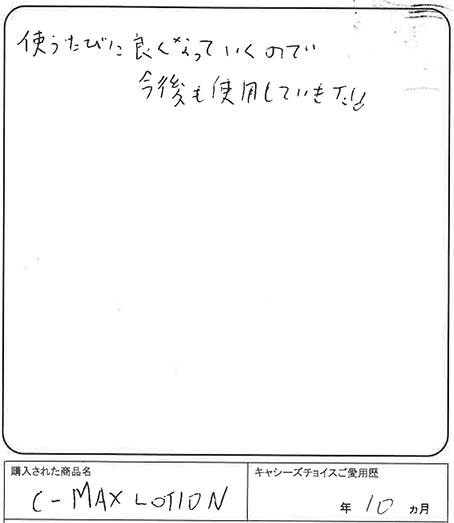 使うたびに良くなっていくので
今後も使用していきたい
購入された商品名
キャシーズチョイスご愛用歴
C-MAX LOTION
年 10 ヵ月